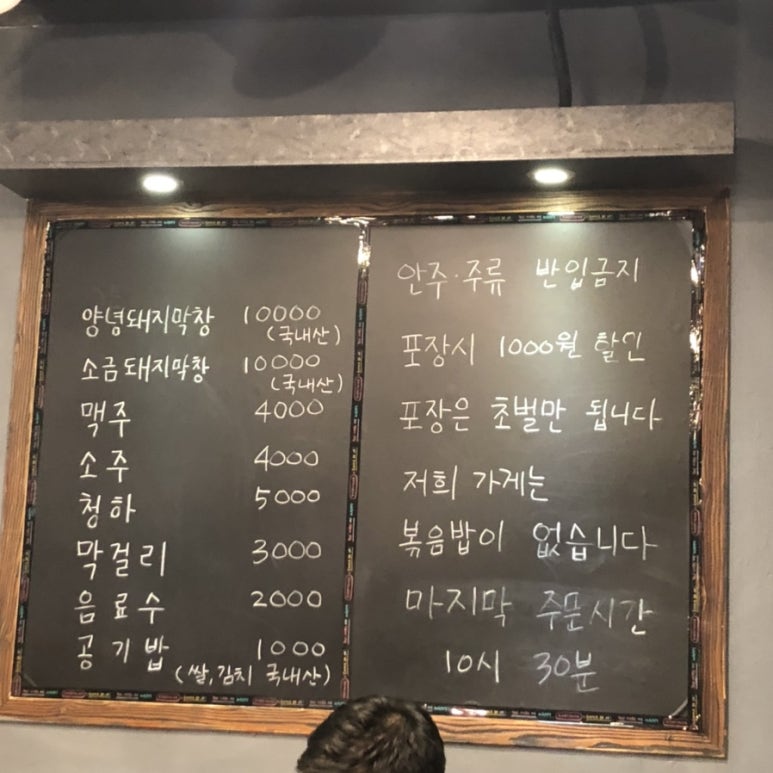 양념돼지막창 10000
(국내산)
소금돼지막창 10000
(국내산)
맥주 4000
소주 4000
청하 5000
막걸리 3000
음료수 2000
공기밥 1000
(쌀,김치 국내산)
안주·주류 반입금지
포장시 1000원 할인
포장은 초벌만 됩니다
저희 가게는
볶음밥이 없습니다
마지막 주문시간
10시 30분